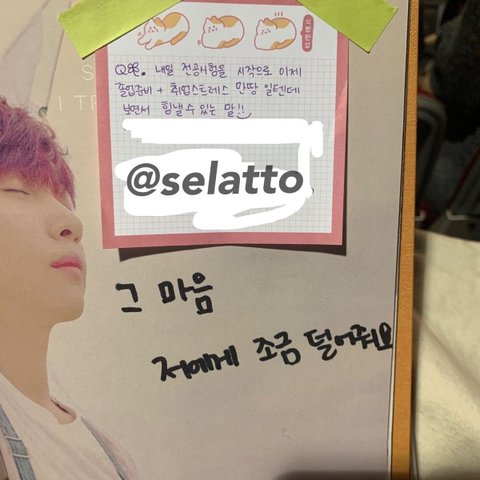 Q. 내일 전공시험을 시작으로 이제
졸업준비 + 취업스트레스 만땅 일텐데
보면서 힘낼 수 있는 말!!
@selatto
그 마음
저에게 조금 덜어줘요